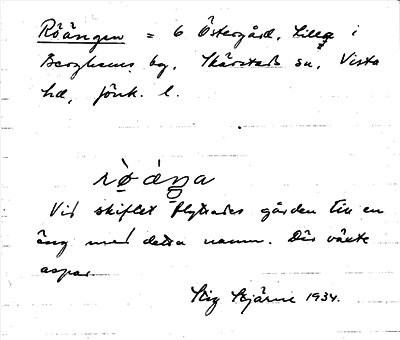 Röängen = 6 Östergård, Lilla i
Berghems by, Skärstads sn, Vista
hd, Jönk. l.
Vid skiftet flyttades gården till en
äng med detta namn. Där växte
aspar.
Stig Stjärne 1934.